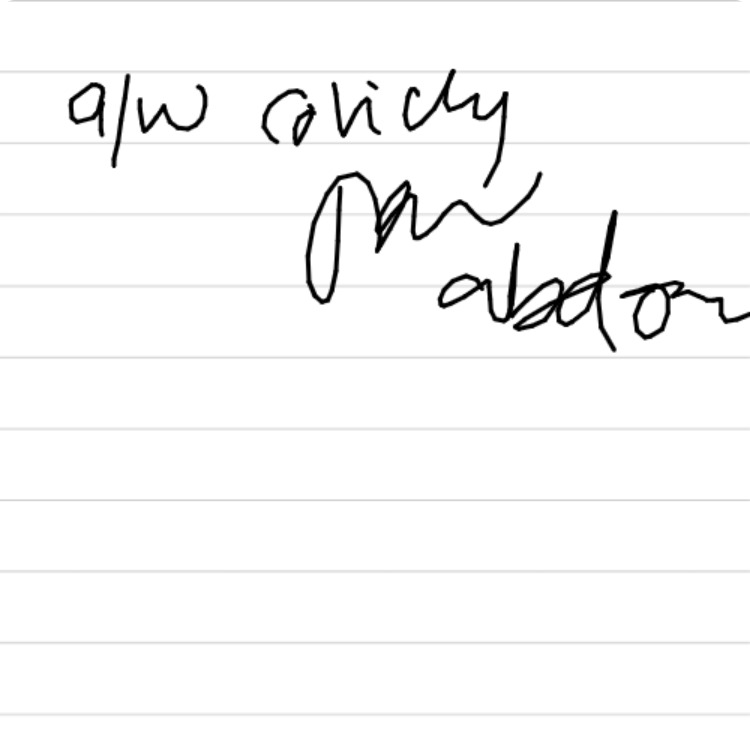 a/w colicky
pain
abdom